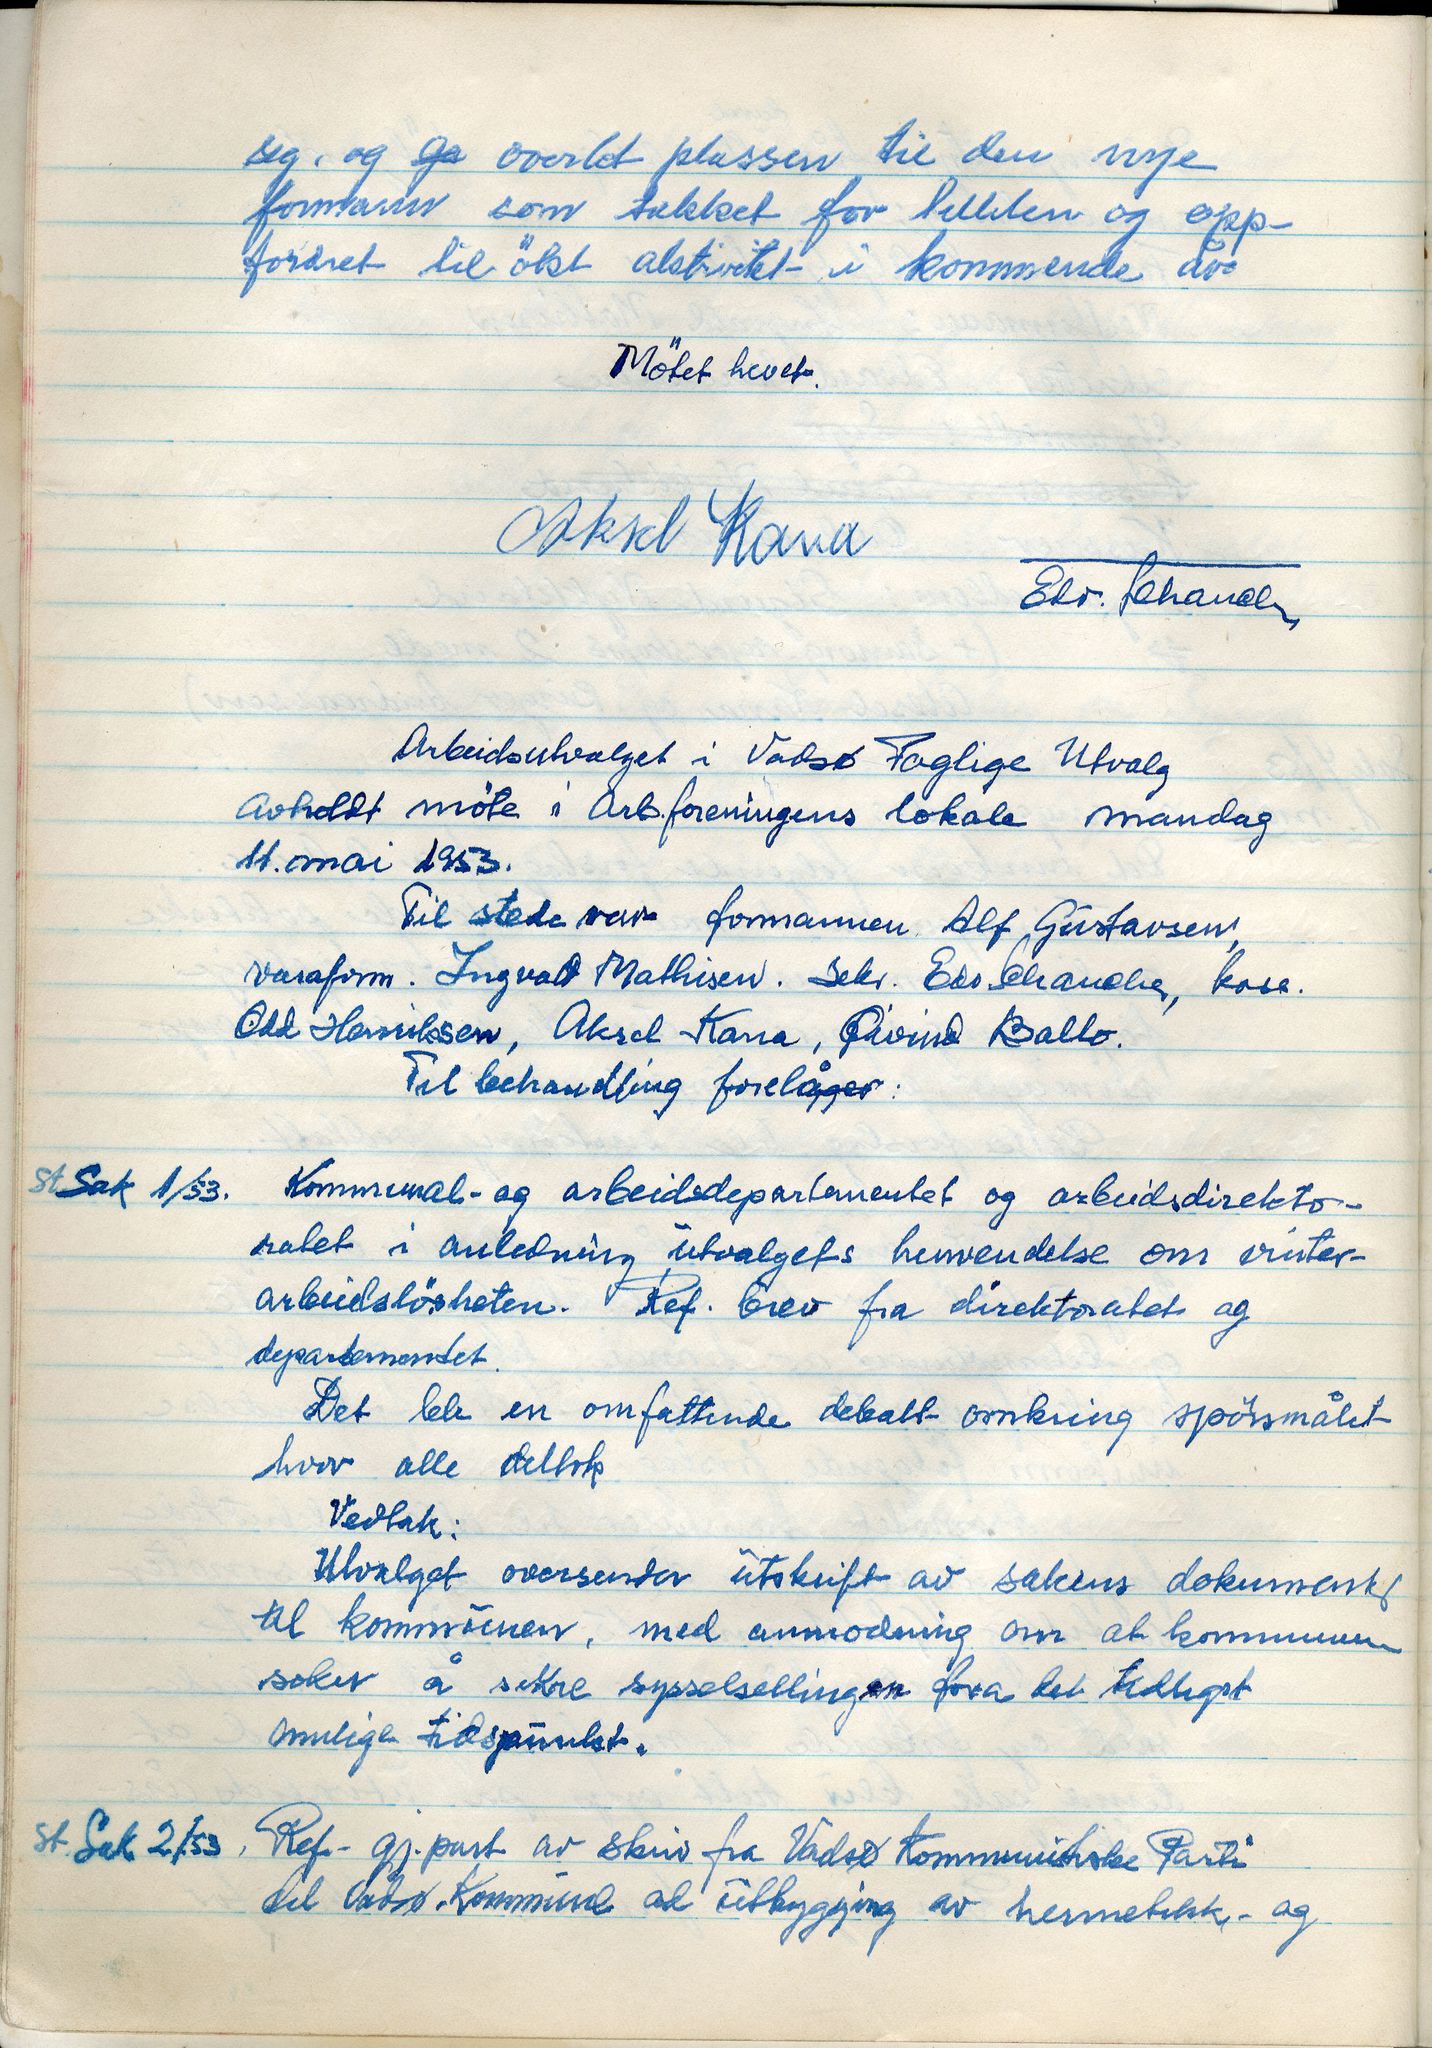 seg, og ga overlot plassen til den nye
formann som takket for tilliten og opp-
fordret til økt aktivitet i kommende år
Mötet hevet.
Aksel Kana
Edv. Schancke
Arbeidsutvalget i Vadsø Faglige Utvalg
avholdt möte i Arb.foreningens lokale mandag
11. mai 1953.
Til stede var formannen Alf Gustavsen,
varaform. Ingvald Mathisen. Sekr. Edv. Schancke, kass.
Odd Henriksen, Aksel Kana, Øivind Ballo.
Til behandling forelå:
St. Sak 1/53. Kommunal- og arbeidsdepartementet og arbeidsdirekto-
ratet i anledning utvalgets henvendelse om vinter-
arbeidslösheten. Ref. brev fra direktoratet og
departementet.
Det ble en omfattende debatt omkring spörsmålet
hvor alle deltok
Vedtak:
Utvalget oversender utskrift av sakens dokumenter
til kommunen, med anmodning om at kommunen
söker å sikre sysselsettingen fra det tidligst
mulige tidspunkt.
St. Sak 2/53. Ref. gj.part av skriv fra Vadsø Kommunistiske Parti
til Vadsø Kommune ad utbygging av hermetikk- og